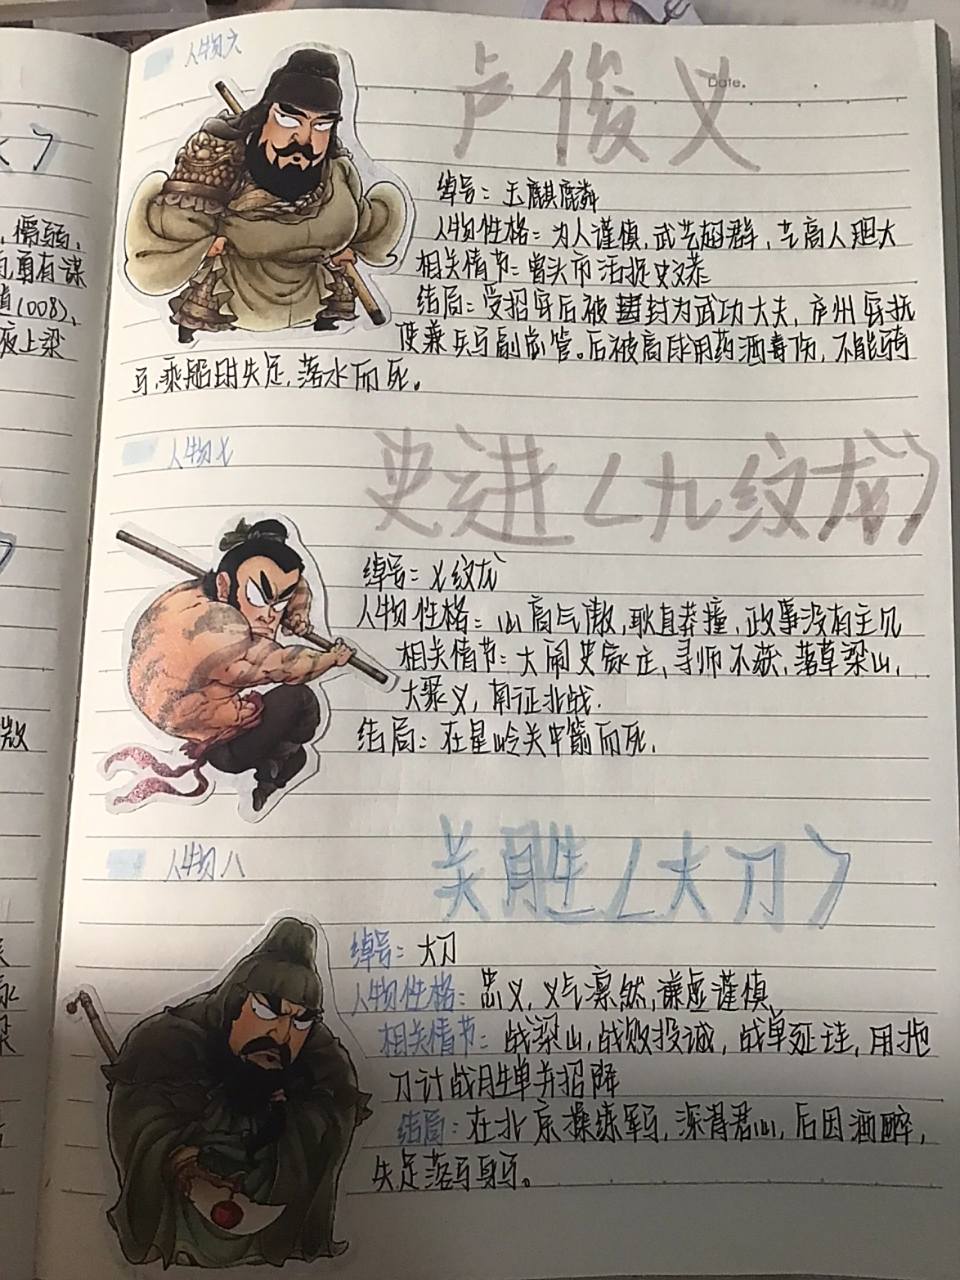 懦弱、
勇有谋
(008)、
夜上梁
人物六
卢俊义
Date.
绰号：玉麒麟
人物性格：为人谨慎，武艺超群，艺高人胆大
相关情节：曾头市活捉史文恭
结局：受招安后被封为武功大夫，庐州安抚
使兼兵马副总管。后被高俅用药酒毒伤，不能骑
马，乘船时失足，落水而死。
人物七
史进（九纹龙）
绰号：九纹龙
人物性格：心高气傲，耿直莽撞，政事没有主见
相关情节：大闹史家庄，寻师不获，落草梁山，
大聚义，南征北战.
结局：在昱岭关中箭而死.
人物八
关胜（大刀）
绰号：大刀
人物性格：忠义，义气凛然，谦虚谨慎、
相关情节：战梁山，战败投诚，战单廷珪，用拖
刀计战胜单并招降
结局：在北京操练军马，深得君心，后因酒醉，
失足落马身马。